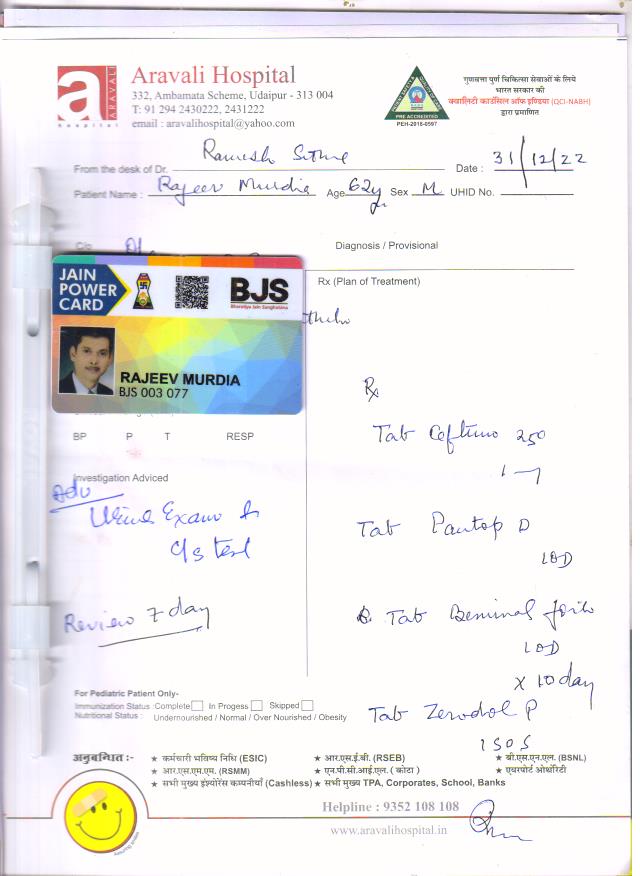 ARAVALI
hospital
Aravali Hospital
332, Ambamata Scheme, Udaipur - 313 004
T: 91 294 2430222, 2431222
email : aravalihospital@yahoo.com
PRE ACCREDITED
PEH-2018-0597
गुणवत्ता पुर्ण चिकित्सा सेवाओं के लिये
भारत सरकार की
क्वालिटी काउंसिल ऑफ इण्डिया (QCI-NABH)
द्वारा प्रमाणित
From the desk of Dr. Ramesh Date : 31/12/22
Patient Name : Rajeev Murdia Age 62y Sex M UHID No.
C/o
Diagnosis / Provisional
Rx (Plan of Treatment)
JAIN
POWER
CARD
BJS
Bharatiya Jain Sanghatana
RAJEEV MURDIA
BJS 003 077
BP P T RESP
Investigation Advised
Adv
Urine Exam &
C/s test
Review 7 day
Rx
Tab Ceftumo 250
Tab Pantop D
1 OD
Tab Beminal forte
1 OD
x 10 day
Tab Zerodol P
1 SOS
For Pediatric Patient Only-
Immunization Status : Complete In Progess Skipped
Nutritional Status : Undernourished / Normal / Over Nourished / Obesity
अनुबन्धित :-
★ कर्मचारी भविष्य निधि (ESIC) ★ आर.एस.ई.बी. (RSEB) ★ बी.एस.एन.एल. (BSNL)
★ आर.एस.एम.एम. (RSMM) ★ एन.पी.सी.आई.एल. ( कोटा ) ★ एयरपोर्ट ऑथोरिटी
★ सभी मुख्य इंश्योरेंस कम्पनीयाँ (Cashless) ★ सभी मुख्य TPA, Corporates, School, Banks
Helpline : 9352 108 108
www.aravalihospital.in
Assuring smiles